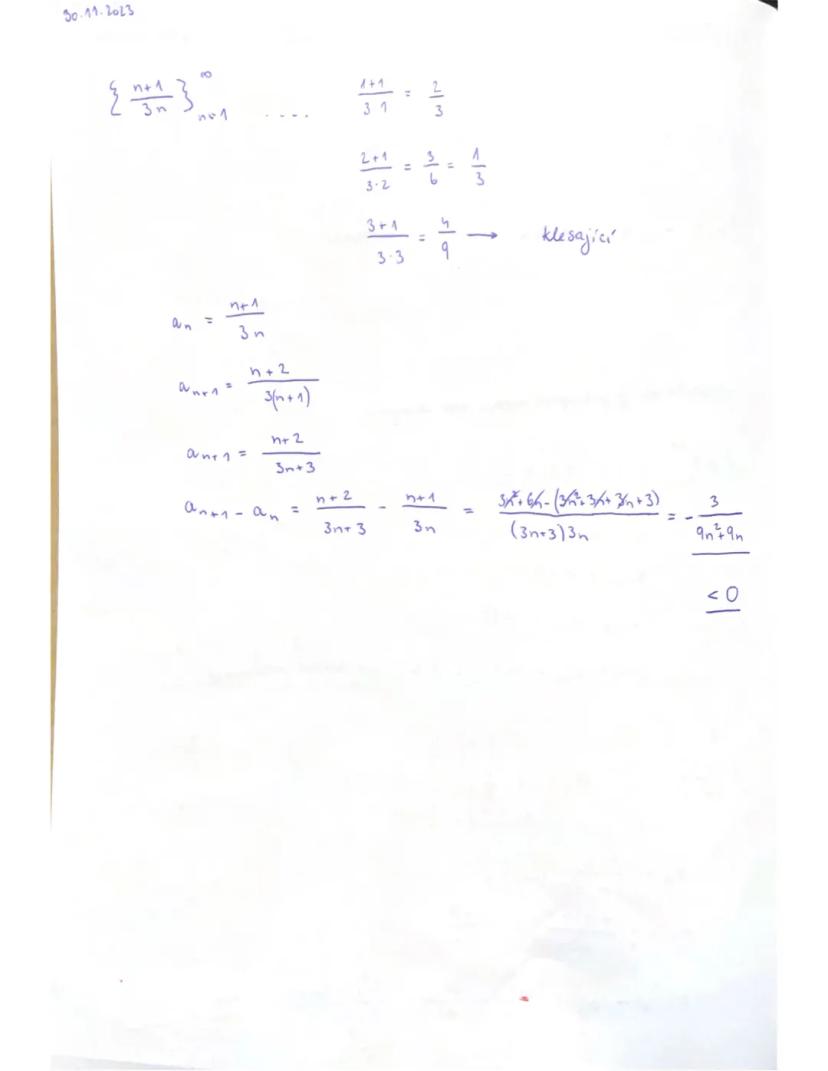 30.11.2023
{ (n+1)/(3n) }_{n=1}^∞ .... (1+1)/(3·1) = 2/3
(2+1)/(3·2) = 3/6 = 1/3
(3+1)/(3·3) = 4/9 → klesající
a_n = (n+1)/(3n)
a_{n+1} = (n+2)/(3(n+1))
a_{n+1} = (n+2)/(3n+3)
a_{n+1} - a_n = (n+2)/(3n+3) - (n+1)/(3n) = (3n²+6n-(3n²+3n+3n+3))/((3n+3)3n) = -3/(9n²+9n)
< 0